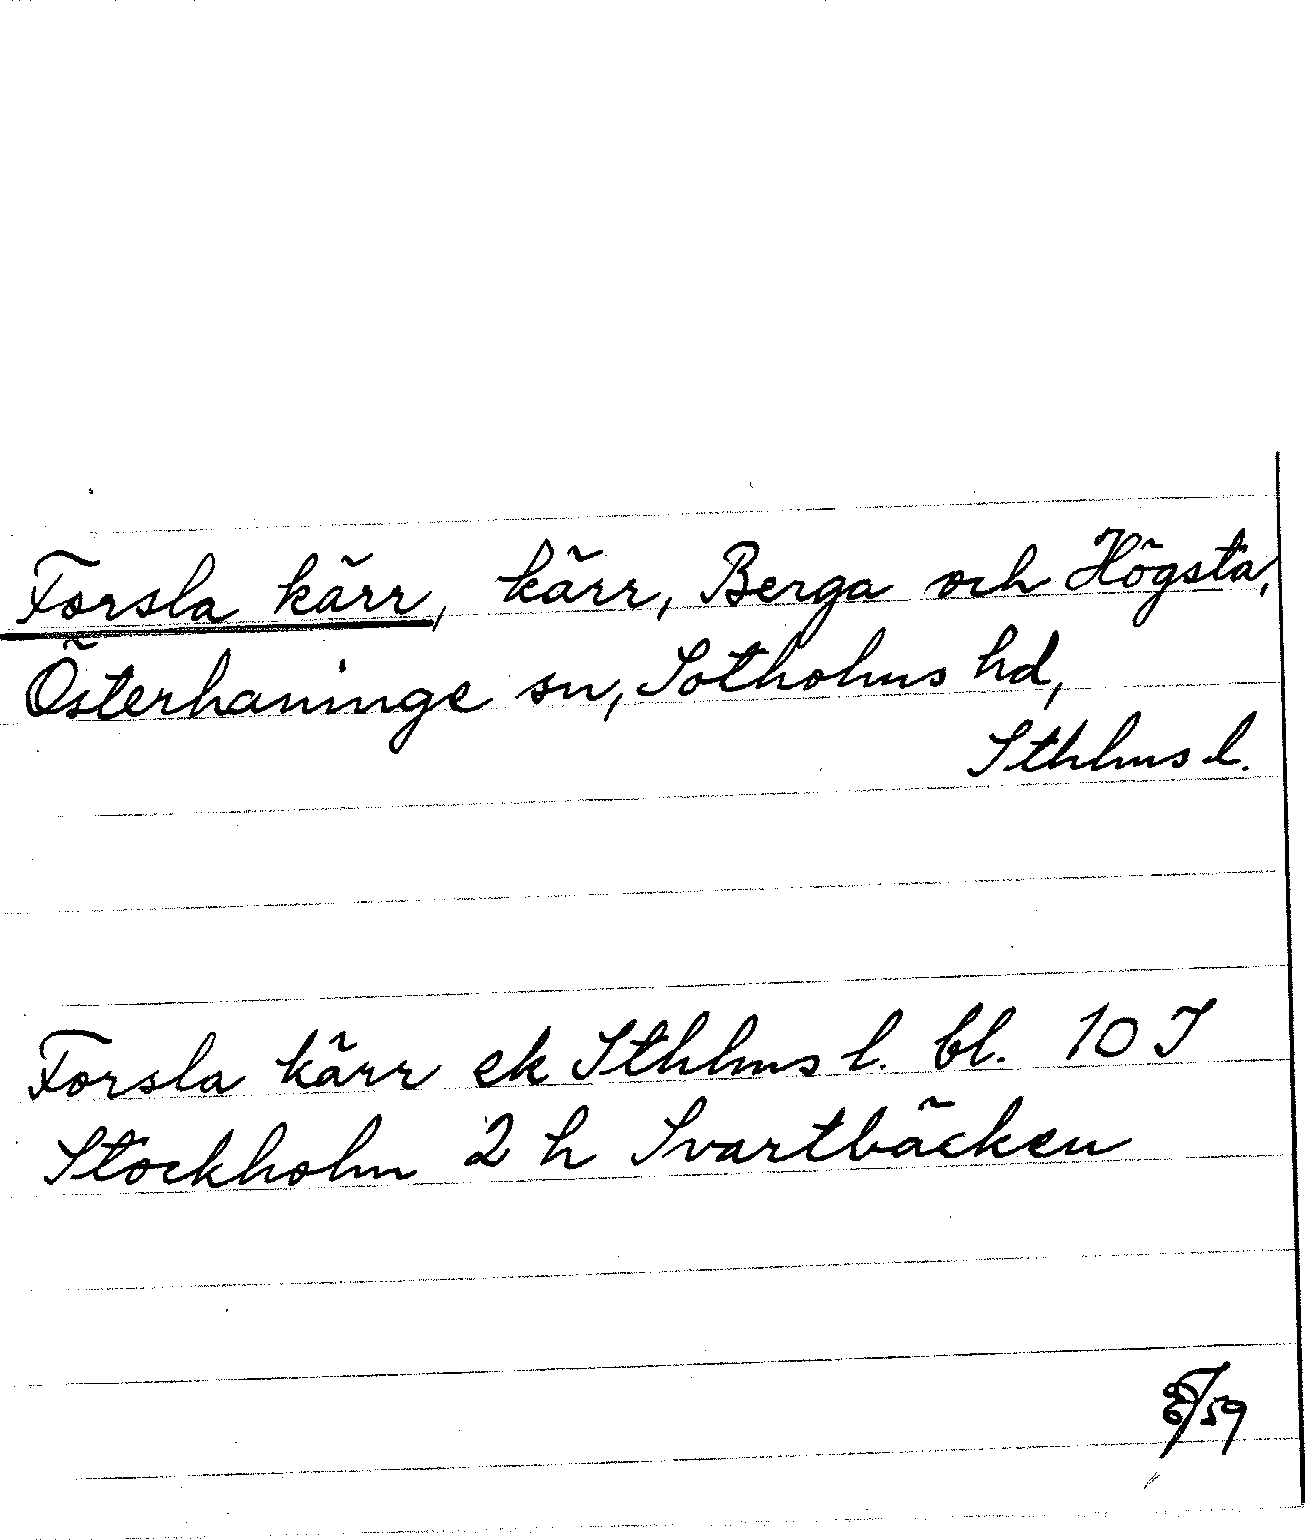 Forsla kärr, kärr, Berga och Högsta,
Österhaninge sn, Sotholms hd,
Sthlms l.
Forsla kärr ek Sthlms l. bl. 10 I
Stockholm 2 h Svartbäcken
/59